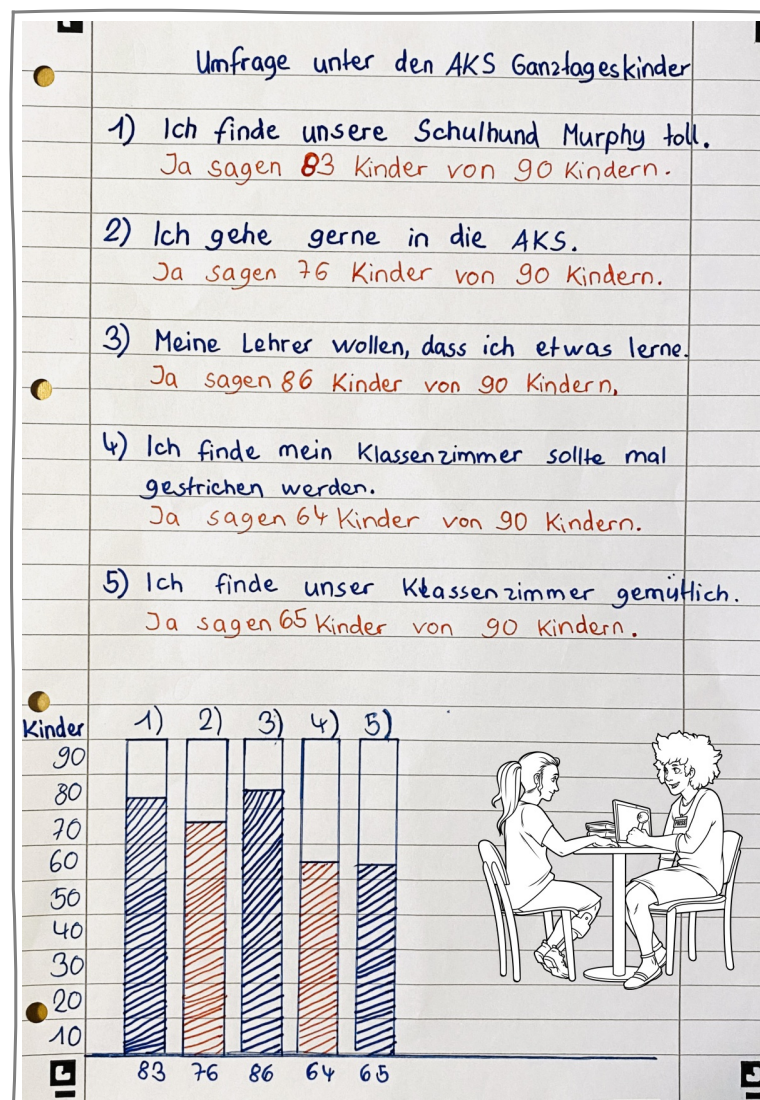 Umfrage unter den AKS Ganztageskinder
1) Ich finde unsere Schulhund Murphy toll.
Ja sagen 83 Kinder von 90 Kindern.
2) Ich gehe gerne in die AKS.
Ja sagen 76 Kinder von 90 Kindern.
3) Meine Lehrer wollen, dass ich etwas lerne.
Ja sagen 86 Kinder von 90 Kindern.
4) Ich finde mein Klassenzimmer sollte mal
gestrichen werden.
Ja sagen 64 Kinder von 90 Kindern.
5) Ich finde unser Klassenzimmer gemütlich.
Ja sagen 65 Kinder von 90 Kindern.
Kinder 1) 2) 3) 4) 5)
90
80
70
60
50
40
30
20
10
83 76 86 64 65